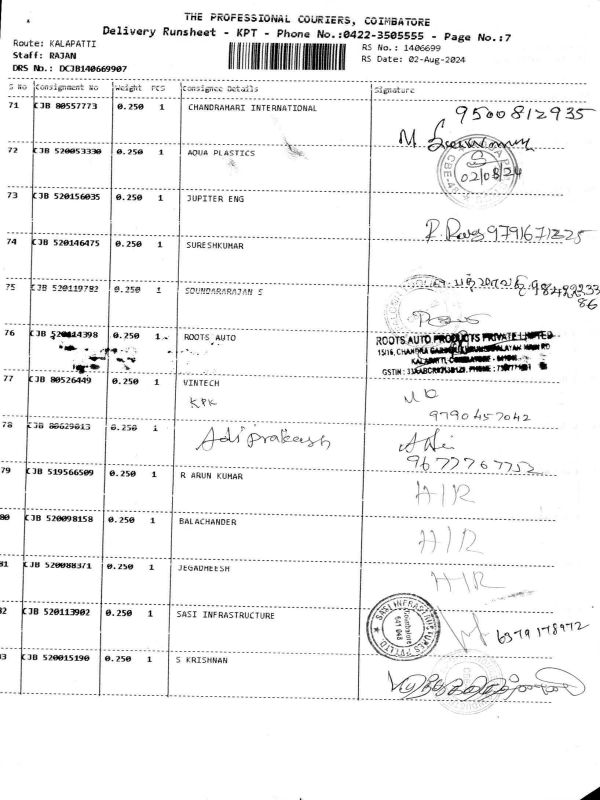 THE PROFESSIONAL COURIERS, COIMBATORE
Delivery Runsheet - KPT - Phone No.:0422-3505555 - Page No.:7
Route: KALAPATTI
Staff: RAJAN
DRS No.: DCJB140669907
RS No.: 1406699
RS Date: 02-Aug-2024
S No Consignment No Weight PCS Consignee Details Signature
71 CJB 80557773 0.250 1 CHANDRAHARI INTERNATIONAL 9500812935
72 CJB 520053330 0.250 1 AQUA PLASTICS
02/08/24
73 CJB 520156035 0.250 1 JUPITER ENG 9791671325
74 CJB 520146475 0.250 1 SURESHKUMAR
75 CJB 520119782 0.250 1 SOUNDARARAJAN S
76 CJB 520114398 0.250 1 ROOTS AUTO
ROOTS AUTO PRODUCTS PRIVATE LIMITED
77 CJB 80526449 0.250 1 VINTECH
KPK
9790457042
78 CJB 80629013 0.250 1 Adi prakash
9677767752
79 CJB 519566509 0.250 1 R ARUN KUMAR H/R
80 CJB 520098158 0.250 1 BALACHANDER H/R
81 CJB 520088371 0.250 1 JEGADHEESH H/R
82 CJB 520113902 0.250 1 SASI INFRASTRUCTURE 6379178972
SASI INFRASTRUCTURES PVT LTD
Coimbatore
641 048
83 CJB 520015190 0.250 1 S KRISHNAN